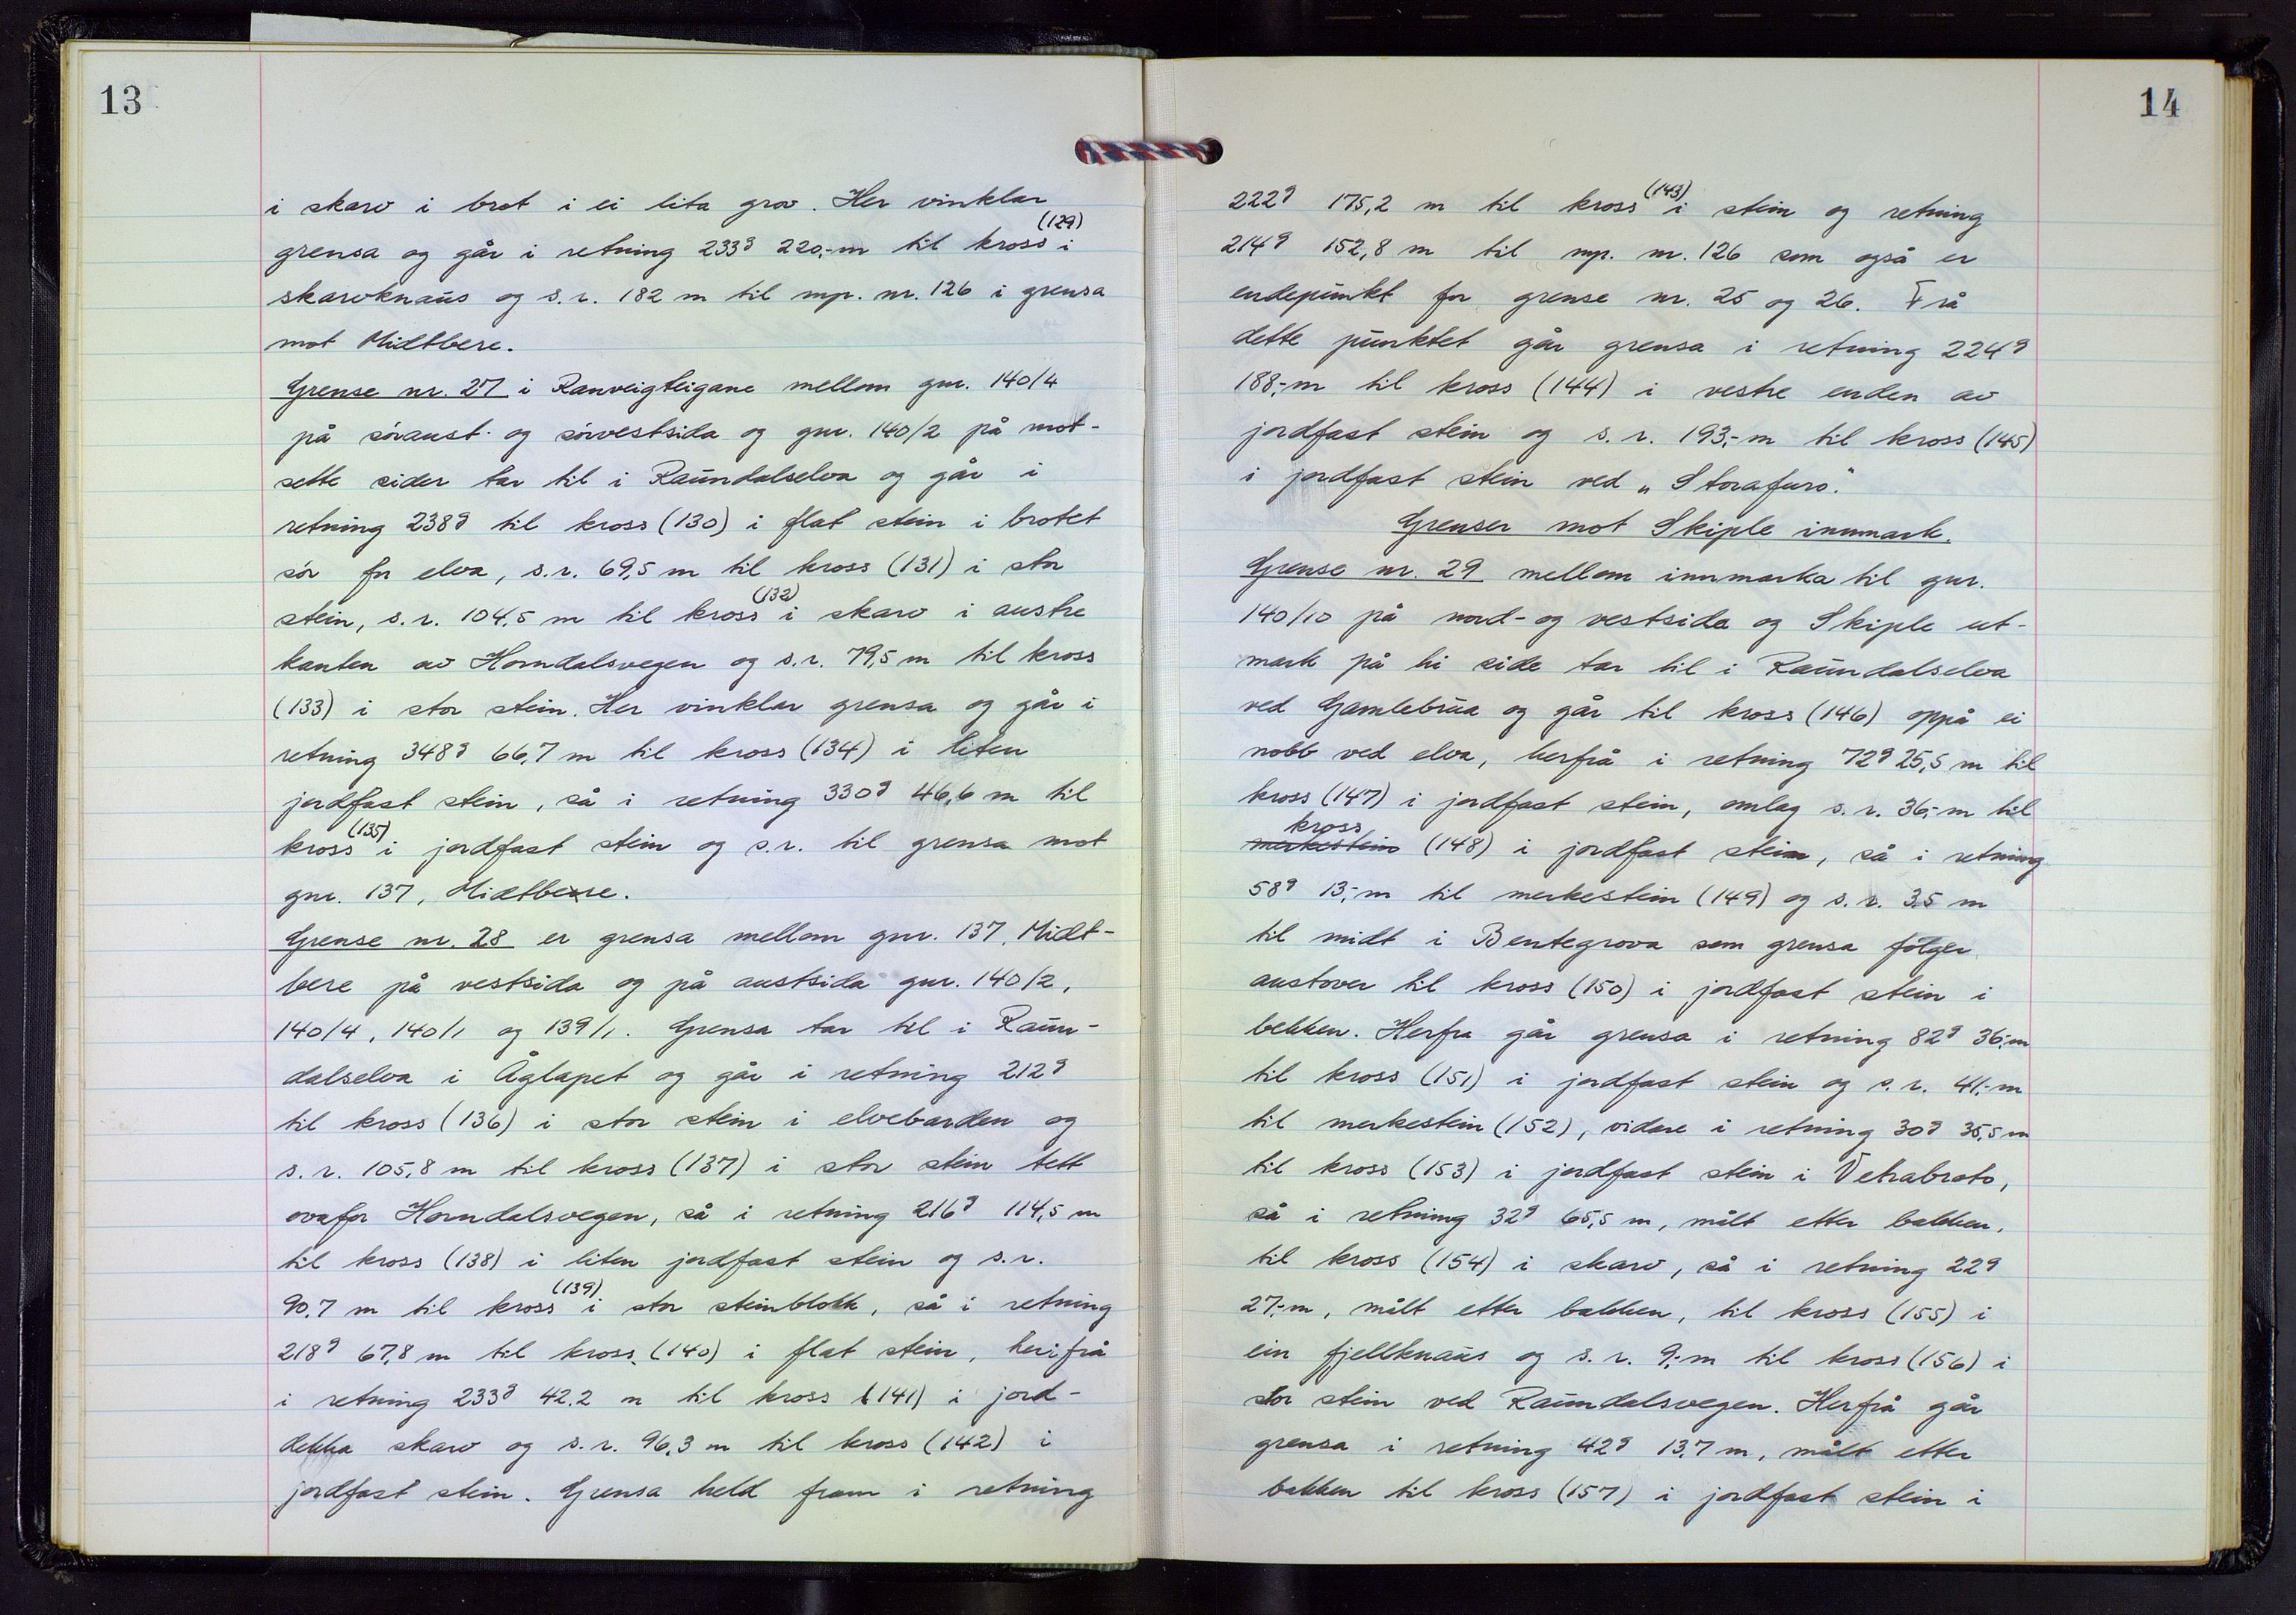 13
i skarv i brot i ei lita grov. Her vinklar
grensa og går i retning 233g 220,-m til kross (129) i
skarvknaus og s.r. 182 m til mp. nr. 126 i grensa
mot Midtbere.
Grense nr. 27 i Ranveigteigane mellom gnr. 140/4
på søraust- og sørvestsida og gnr. 140/2 på mot-
sette sider tar til i Raundalselva og går i
retning 238g til kross (130) i flat stein i brotet
sør for elva, s.r. 69,5 m til kross (131) i stor
stein, s.r. 104,5 m til kross (132) i skarv i austre
kanten av Horndalsvegen og s.r. 79,5 m til kross
(133) i stor stein. Her vinklar grensa og går i
retning 348g 66,7 m til kross (134) i liten
jordfast stein, så i retning 330g 46,6 m til
kross (135) i jordfast stein og s.r. til grensa mot
gnr. 137, Midtbere.
Grense nr. 28 er grensa mellom gnr. 137, Midt-
bere på vestsida og på austsida gnr. 140/2,
140/4, 140/1 og 139/1. Grensa tar til i Raun-
dalselva i Åglapet og går i retning 212g
til kross (136) i stor stein i elvebarden og
s.r. 105,8 m til kross (137) i stor stein tett
ovafor Horndalsvegen, så i retning 216g 114,5 m
til kross (138) i liten jordfast stein og s.r.
90,7 m til kross (139) i stor steinblokk, så i retning
218g 67,8 m til kross (140) i flat stein, herifrå
i retning 233g 42,2 m til kross (141) i jord-
dekka skarv og s.r. 96,3 m til kross (142) i
jordfast stein. Grensa held fram i retning
14
222g 175,2 m til kross (143) i stein og retning
214g 152,8 m til mp. nr. 126 som også er
endepunkt for grense nr. 25 og 26. Frå
dette punktet går grensa i retning 224g
188,-m til kross (144) i vestre enden av
jordfast stein og s.r. 193,-m til kross (145)
i jordfast stein ved „Storafuro".
Grenser mot Skiple innmark.
Grense nr. 29 mellom innmarka til gnr.
140/10 på nord- og vestsida og Skiple ut-
mark på hi side tar til i Raundalselva
ved Gamlebrua og går til kross (146) oppå ei
nobb ved elva, herfrå i retning 72g 25,5 m til
kross (147) i jordfast stein, omlag s.r. 36,-m til
kross
merkestein (148) i jordfast stein, så i retning
58g 13,-m til merkestein (149) og s.r. 3,5 m
til midt i Bentegrova som grensa følger
austover til kross (150) i jordfast stein i
bekken. Herfra går grensa i retning 82g 36,-m
til kross (151) i jordfast stein og s.r. 41,-m
til merkestein (152), vidare i retning 30g 35,5 m
til kross (153) i jordfast stein i Vetrabroto,
så i retning 32g 65,5 m, målt etter bakken,
til kross (154) i skarv, så i retning 22g
27,-m, målt etter bakken, til kross (155) i
ein fjellknaus og s.r. 9,-m til kross (156) i
stor stein ved Raundalsvegen. Herfrå går
grensa i retning 42g 13,7 m, målt etter
bakken til kross (157) i jordfast stein i